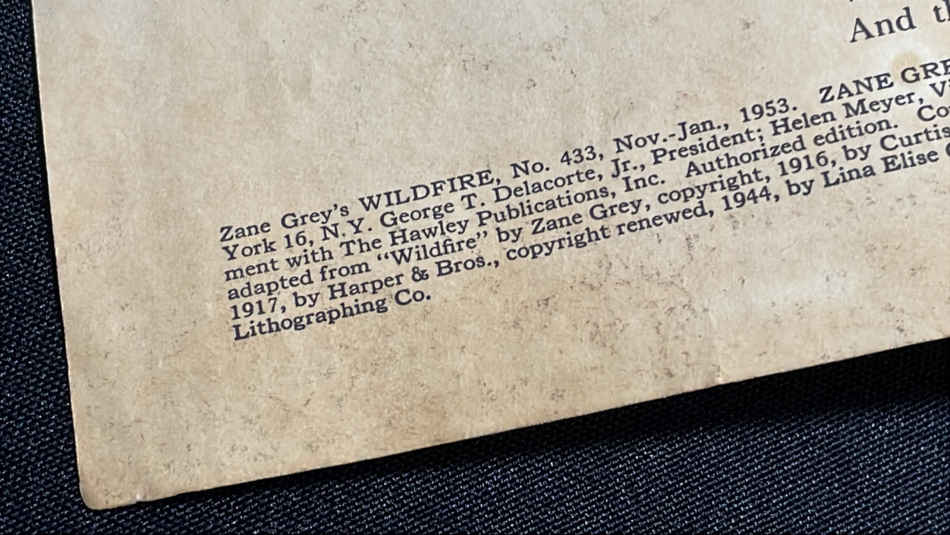 And
Zane Grey's WILDFIRE, No. 433, Nov.-Jan., 1953. ZANE
York 16, N.Y. George T. Delacorte, Jr., President; Helen Meyer,
ment with The Hawley Publications, Inc. Authorized edition.
adapted from "Wildfire" by Zane Grey, copyright, 1916, by Curtis
1917, by Harper & Bros., copyright renewed, 1944, by Lina Elise
Lithographing Co.